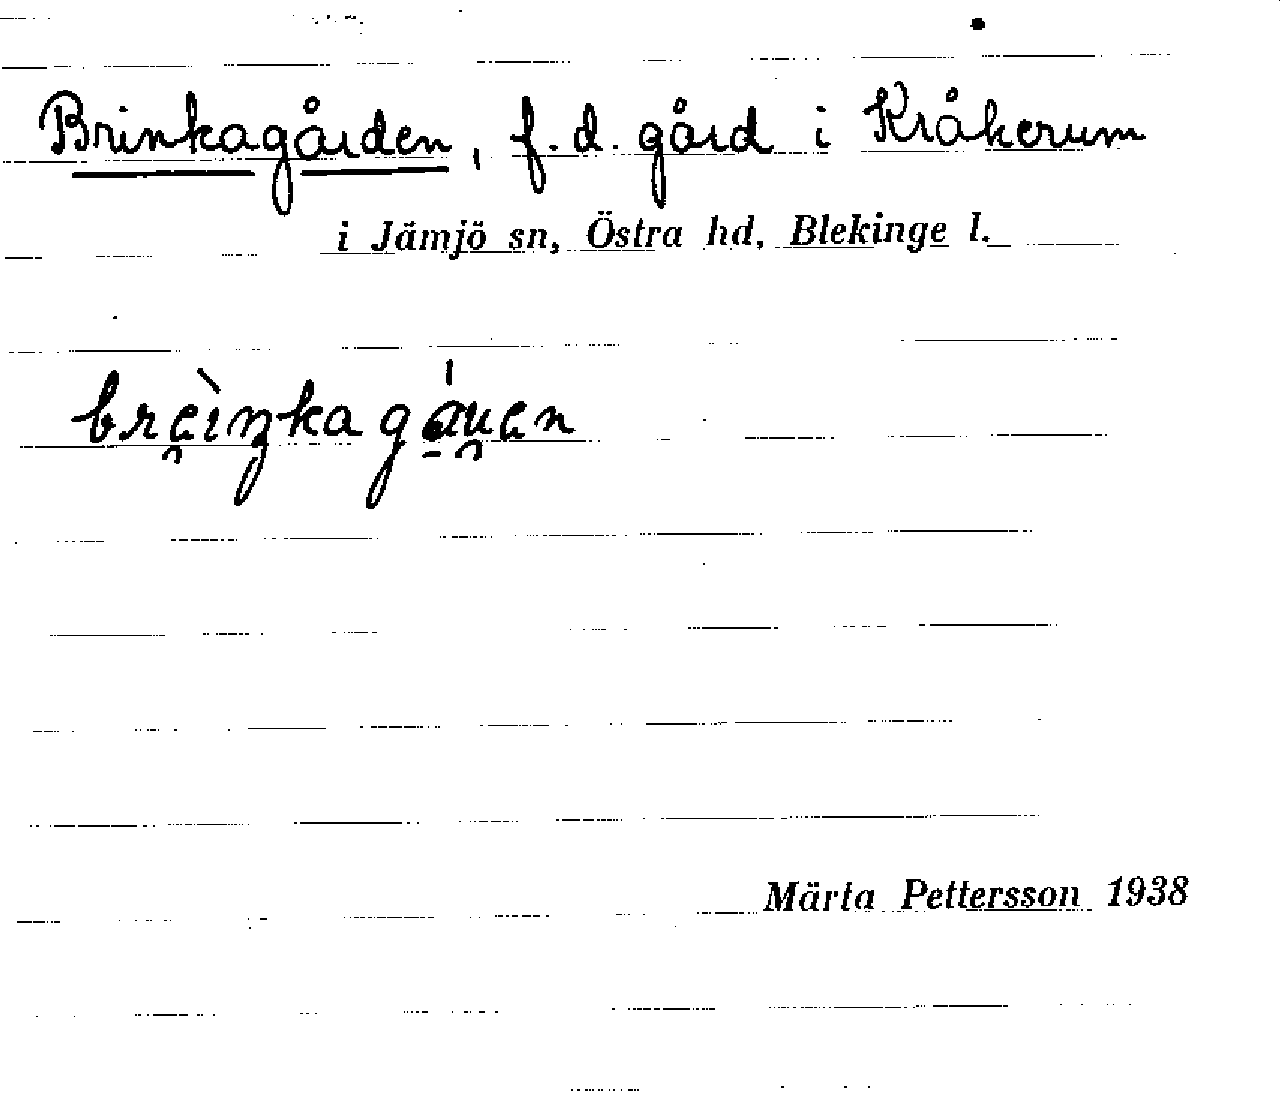 Brinkagården, f. d. gård i Kråkerum
i Jämjö sn, Östra hd, Blekinge l.
Märta Pettersson 1938